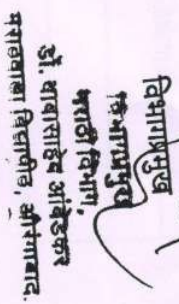 विभागप्रमुख
विभागप्रमुख
मराठी विभाग,
डॉ. बाबासाहेब आंबेडकर
मराठवाडा विद्यापीठ, औरंगाबाद.